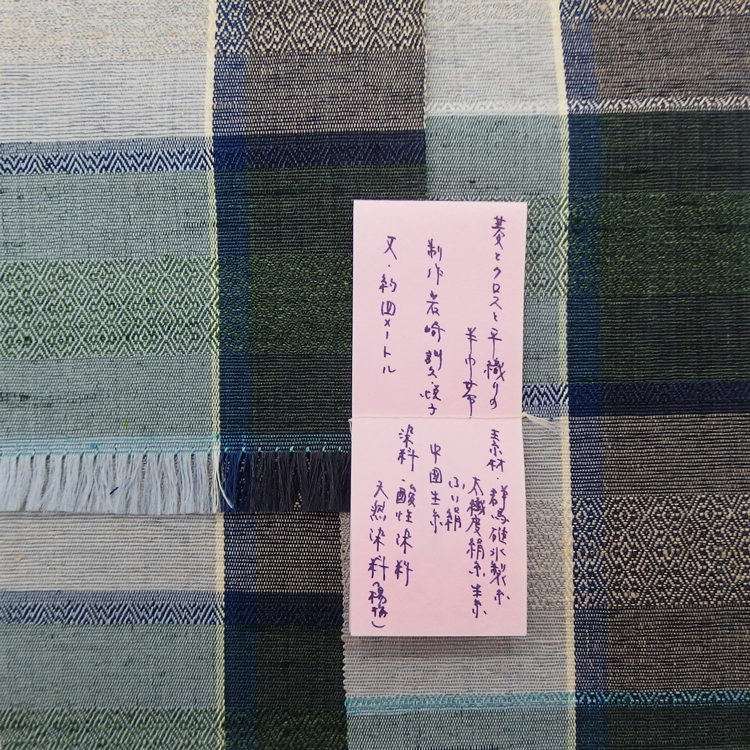 菱とクロスと平織りの
半巾帯
制作 岩崎訓久・悦子
丈・約四メートル
素材・群馬碓氷製糸
太繊度絹糸 生糸
ふい絹
中国生糸
染料・酸性染料
天然染料(楊梅)